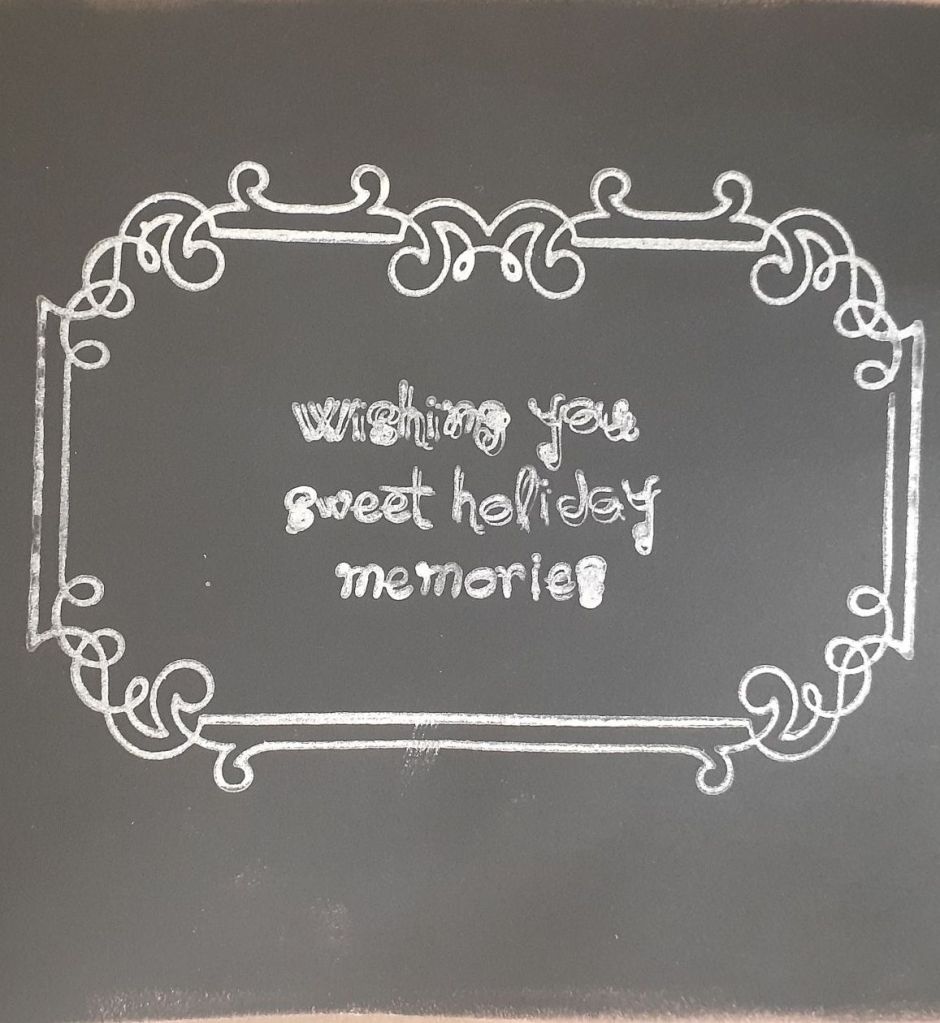 wishing you
sweet holiday
memories